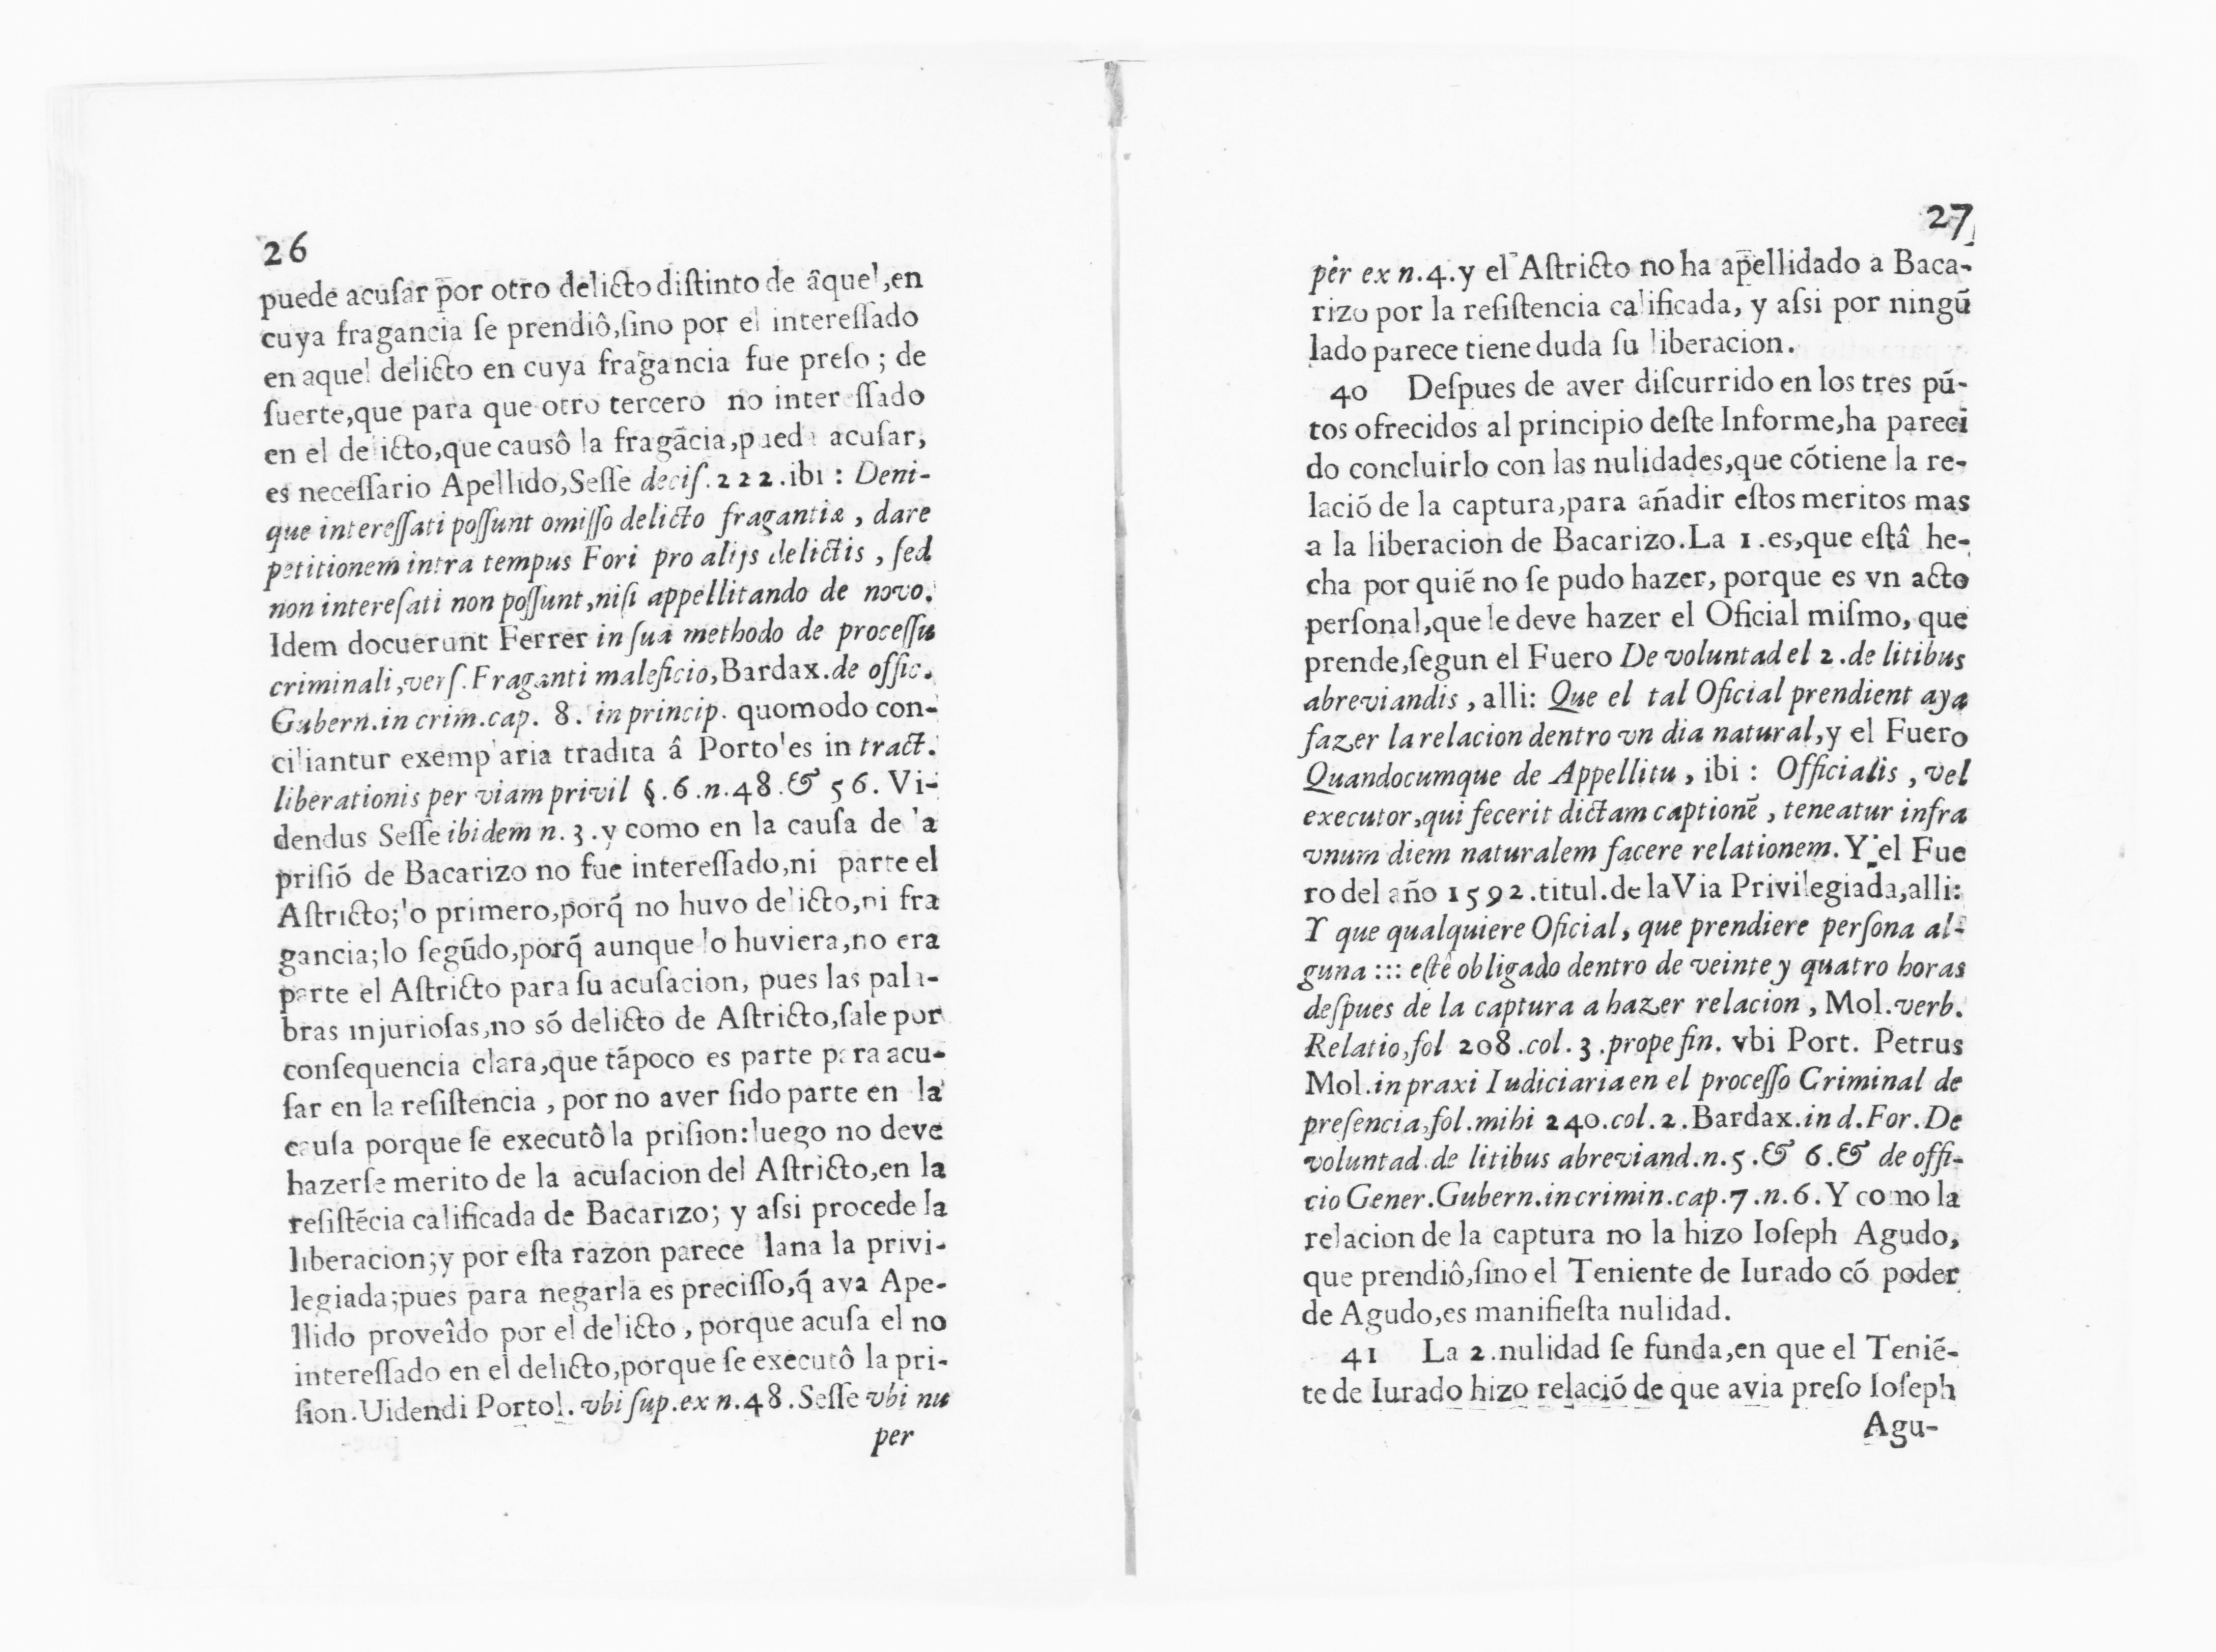 26
puede acuſar por otro delicto diſtinto de âquel,en
cuya fragancia ſe prendiô,ſino por el intereſſado
en aquel delicto en cuya fragancia fue preſo ; de
ſuerte,que para que otro tercero no intereſſado
en el delicto,que causô la fragãcia,pueda acuſar,
es neceſſario Apellido,Seſſe deciſ.222.ibi : Deni-
que intereſſati poſſunt omiſſo delicto fragantiæ , dare
petitionem intra tempus Fori pro alijs delictis , ſed
non intereſati non poſſunt,niſi appellitando de novo.
Idem docuerunt Ferrer in ſua methodo de proceſſu
criminali,verſ.Fraganti maleficio,Bardax.de offic.
Gubern.in crim.cap. 8. in princip. quomodo con-
ciliantur exemplaria tradita â Portoles in tract.
liberationis per viam privil §.6.n.48.& 56. Vi-
dendus Seſſe ibidem n. 3.y como en la cauſa de la
priſió de Bacarizo no fue intereſſado,ni parte el
Aſtricto;lo primero,porq̃ no huvo delicto,ni fra
gancia;lo ſegũdo,porq̃ aunque lo huviera,no era
parte el Aſtricto para ſu acuſacion, pues las pala-
bras injurioſas,no só delicto de Aſtricto,ſale por
conſequencia clara,que tãpoco es parte para acu-
ſar en la reſiſtencia , por no aver ſido parte en la
cauſa porque ſe executô la priſion:luego no deve
hazerſe merito de la acuſacion del Aſtricto,en la
reſiſtécia calificada de Bacarizo; y aſsi procede la
liberacion;y por eſta razon parece llana la privi-
legiada;pues para negarla es preciſſo,q̃ aya Ape-
llido proveîdo por el delicto , porque acuſa el no
intereſſado en el delicto,porque ſe executô la pri-
ſion.Uidendi Portol. vbi ſup.ex n.48.Seſſe vbi nu
per
27
per ex n.4.y el Aſtricto no ha apellidado a Baca-
rizo por la reſiſtencia calificada, y aſsi por ningũ
lado parece tiene duda ſu liberacion.
40 Deſpues de aver diſcurrido en los tres pú-
tos ofrecidos al principio deſte Informe,ha pareci
do concluirlo con las nulidades,que cótiene la re-
lació de la captura,para añadir eſtos meritos mas
a la liberacion de Bacarizo.La 1.es,que eſtâ he-
cha por quiẽ no ſe pudo hazer, porque es vn acto
perſonal,que le deve hazer el Oficial miſmo, que
prende,ſegun el Fuero De voluntad el 2.de litibus
abreviandis , alli: Que el tal Oficial prendient aya
fazer la relacion dentro vn dia natural,y el Fuero
Quandocumque de Appellitu , ibi : Officialis , vel
executor,qui fecerit dictam captionẽ , teneatur infra
vnum diem naturalem facere relationem. Y el Fue
ro del año 1592.titul.de la Via Privilegiada,alli:
Y que qualquiere Oficial, que prendiere perſona al-
guna ::: eſtê obligado dentro de veinte y quatro horas
deſpues de la captura a hazer relacion , Mol.verb.
Relatio,fol 208.col. 3.prope fin. vbi Port. Petrus
Mol.in praxi Iudiciaria en el proceſſo Criminal de
preſencia,fol.mihi 240.col.2.Bardax.in d.For.De
voluntad.de litibus abreviand.n.5.& 6.& de offi-
cio Gener.Gubern.in crimin.cap.7.n.6.Y como la
relacion de la captura no la hizo Ioſeph Agudo,
que prendiô,ſino el Teniente de Iurado có poder
de Agudo,es manifieſta nulidad.
41 La 2.nulidad ſe funda,en que el Tenié-
te de Iurado hizo relació de que avia preſo Ioſeph
Agu-